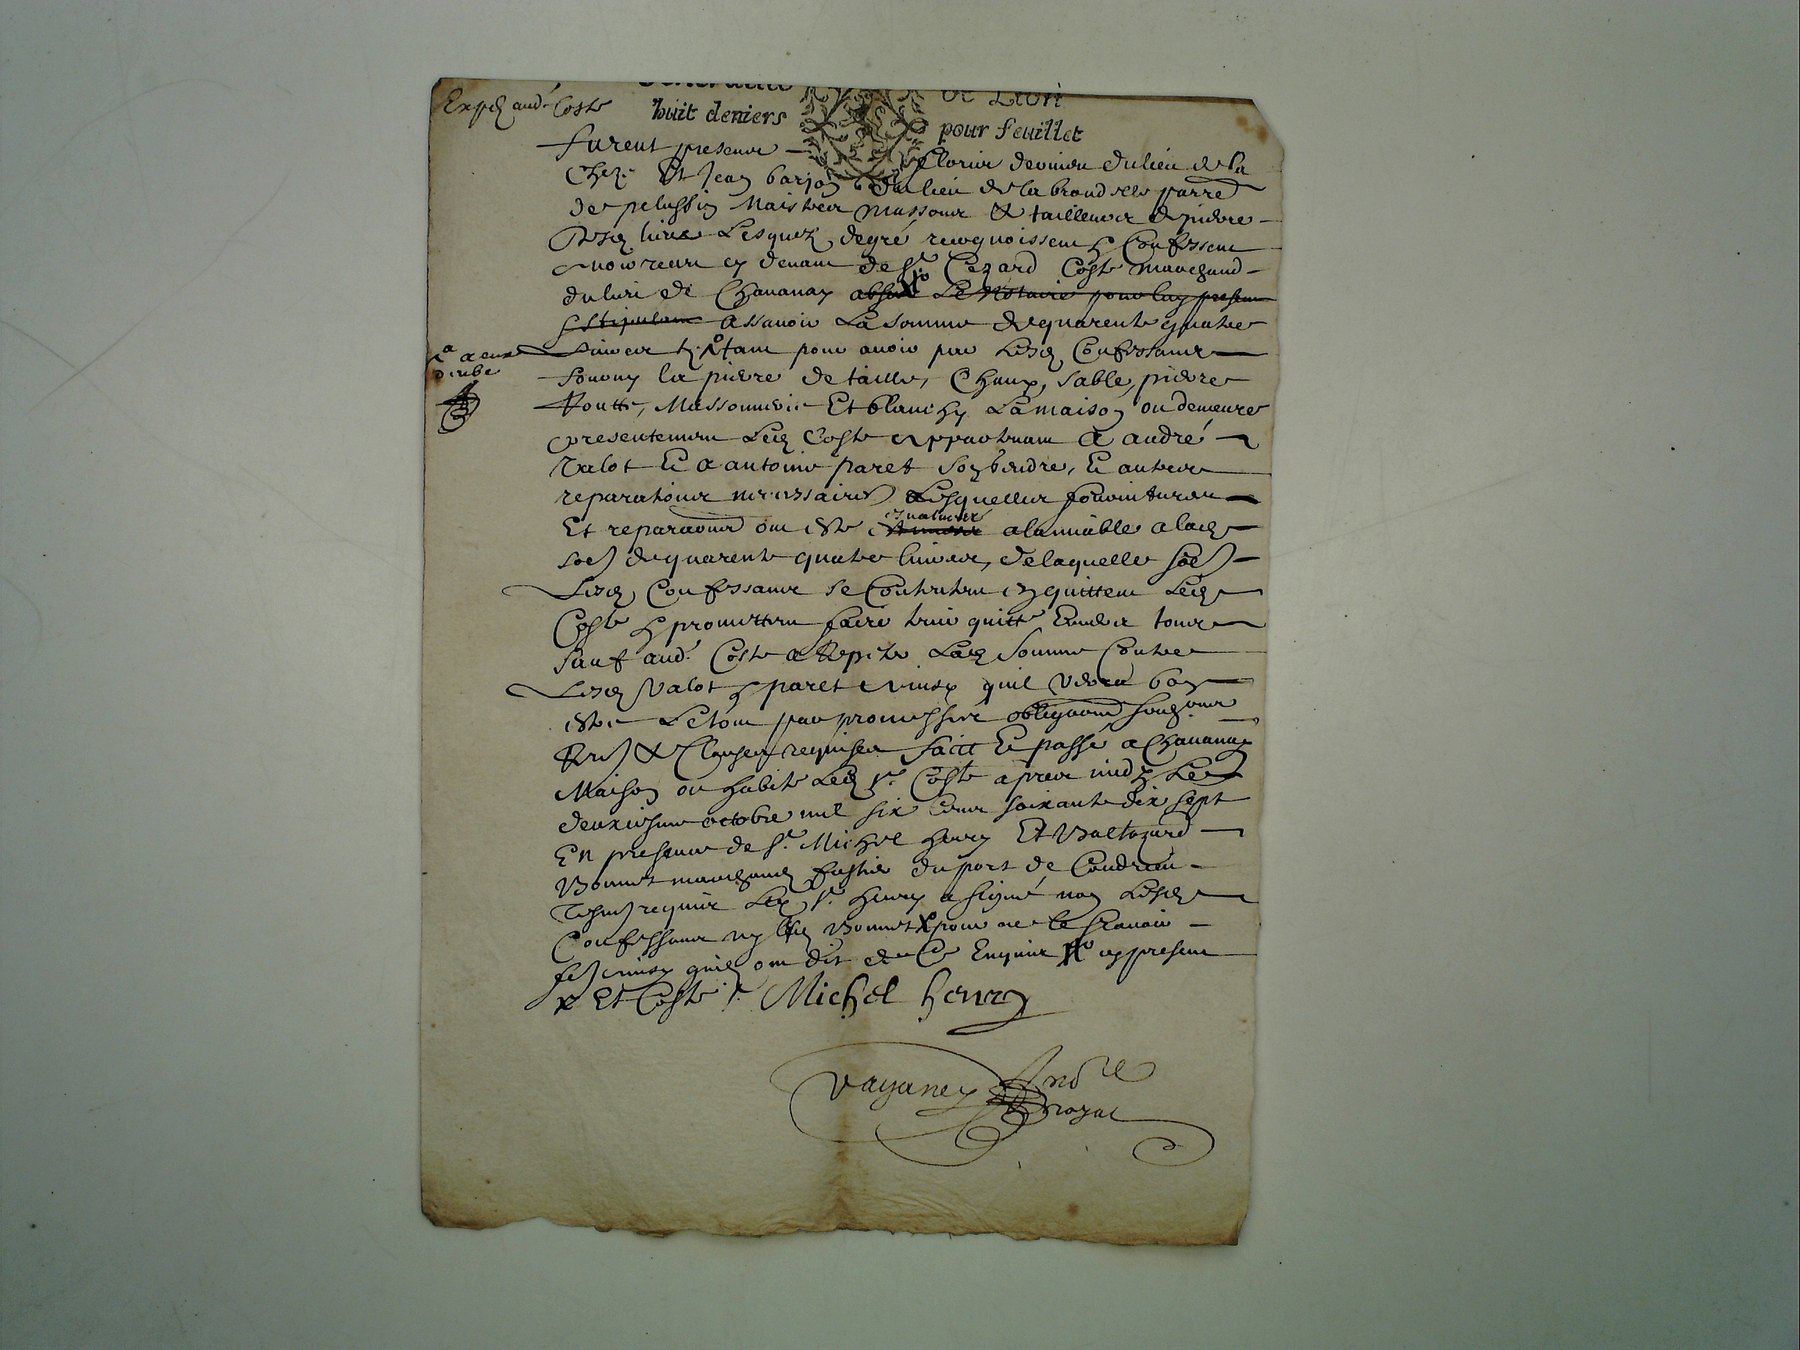 Exped aud. Coste
huit deniers pour feuillet
furent presens Florin du lieu de la
Et Jean barjon du lieu de la parre
de pelussin Maistres massons & tailleurs de pierre
Lesquelz degré recognoissent & Confessent
avoir receu cy devant de Sr. Cezard Coste marchand
du lieu de Chavanay absent Le Notaire pour luy present
& stipulant assavoir La somme de quarente quatre
a eux
Livres pour avoir par Lesd. Confessants
fourny la pierre de taille, Chaux, sable, pierre
Routte, Massonnerie Et blanchy La maison ou demeure
presentement Led. Coste appartenant a andré
Valot & a antoine paret son gendre, & autres
reparations necessaires Lesquelles fournitures
Et reparaons ont esté esvaluees a lamiable a lad.
so. de quarente quatre livres, de laquelle so.
Lesd. Confessants se Contentent en quittent Led.
Coste & promettent faire tenir quitte Envers tous
sauf aud. Coste a Repeter Lad. somme Contre
Lesd. Valot & paret ainsy quil verra bon
estre Le tout par promesses obligaons
& Clauses requises faict & passé a Chavanay
Maison ou habite Led. Sr. Coste apres midy Le
deuxiesme octobre mil six cens soixante dix sept
En presence de Sr. Michel henry Et Baltazard
Bonnet marchand du port de Condrieu
requis Led. Sr. henry a signé non Lesd.
Confessants ny led. Bonnet X pour ne le scavoir
ainsy quilz ont dit de Ce Enquis
x Et Coste Michel henry
Vaganey Nore
Royal